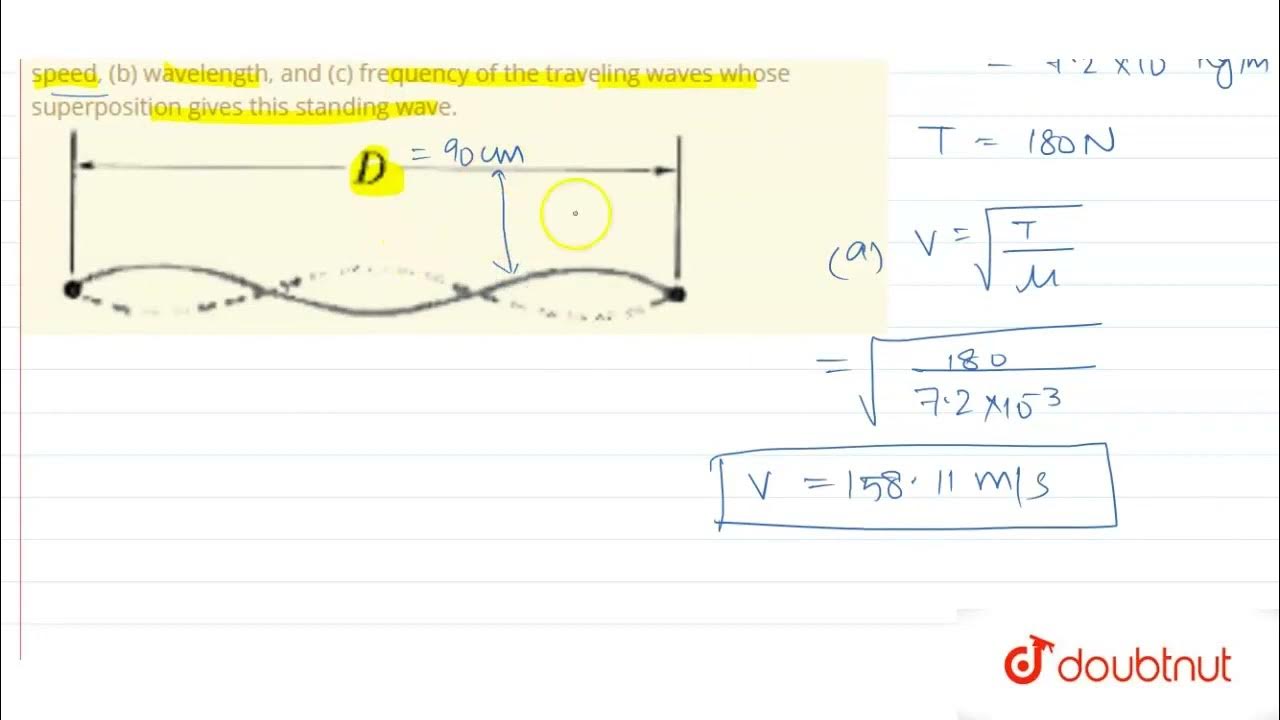 speed, (b) wavelength, and (c) frequency of the traveling waves whose
superposition gives this standing wave.
D = 90 cm
T = 180 N
(a) V = √(T/μ)
= √(180/7.2×10⁻³)
V = 158.11 m/s
doubtnut